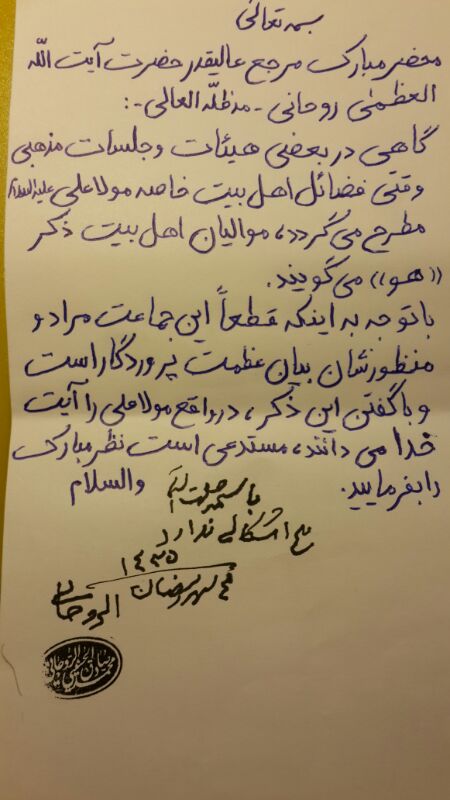 بسمه تعالی
محضر مبارک مرجع عالیقدر حضرت آیت اللّه
العظمی روحانی - مدظلّه العالی -:
گاهی در بعضی هیئات و جلسات مذهبی
وقتی فضائل اهل بیت خاصه مولا علی علیه السلام
مطرح می گردد، موالیان اهل بیت ذکر
((هو)) می گویند.
با توجه به اینکه قطعاً این جماعت مراد و
منظورشان بیان عظمت پروردگار است
و با گفتن این ذکر، در واقع مولا علی را آیت
خدا می دانند، مستدعی است نظر مبارک
را بفرمایید. والسلام
باسمه جلت
هیچ اشکالی ندارد
شهر رمضان ۱۴۳۵
الروحانی